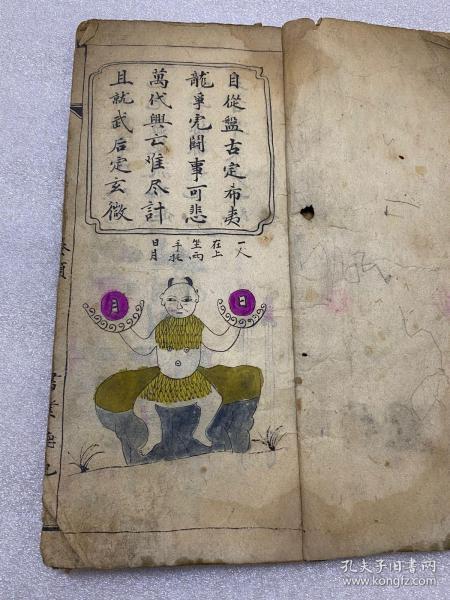 自從盤古定希夷
龍爭虎鬪事可悲
萬代興亡难尽計
且就武后定玄微
一人
在上
坐兩
手托
日月
日
月
孔夫子旧书网
www.kongfz.com